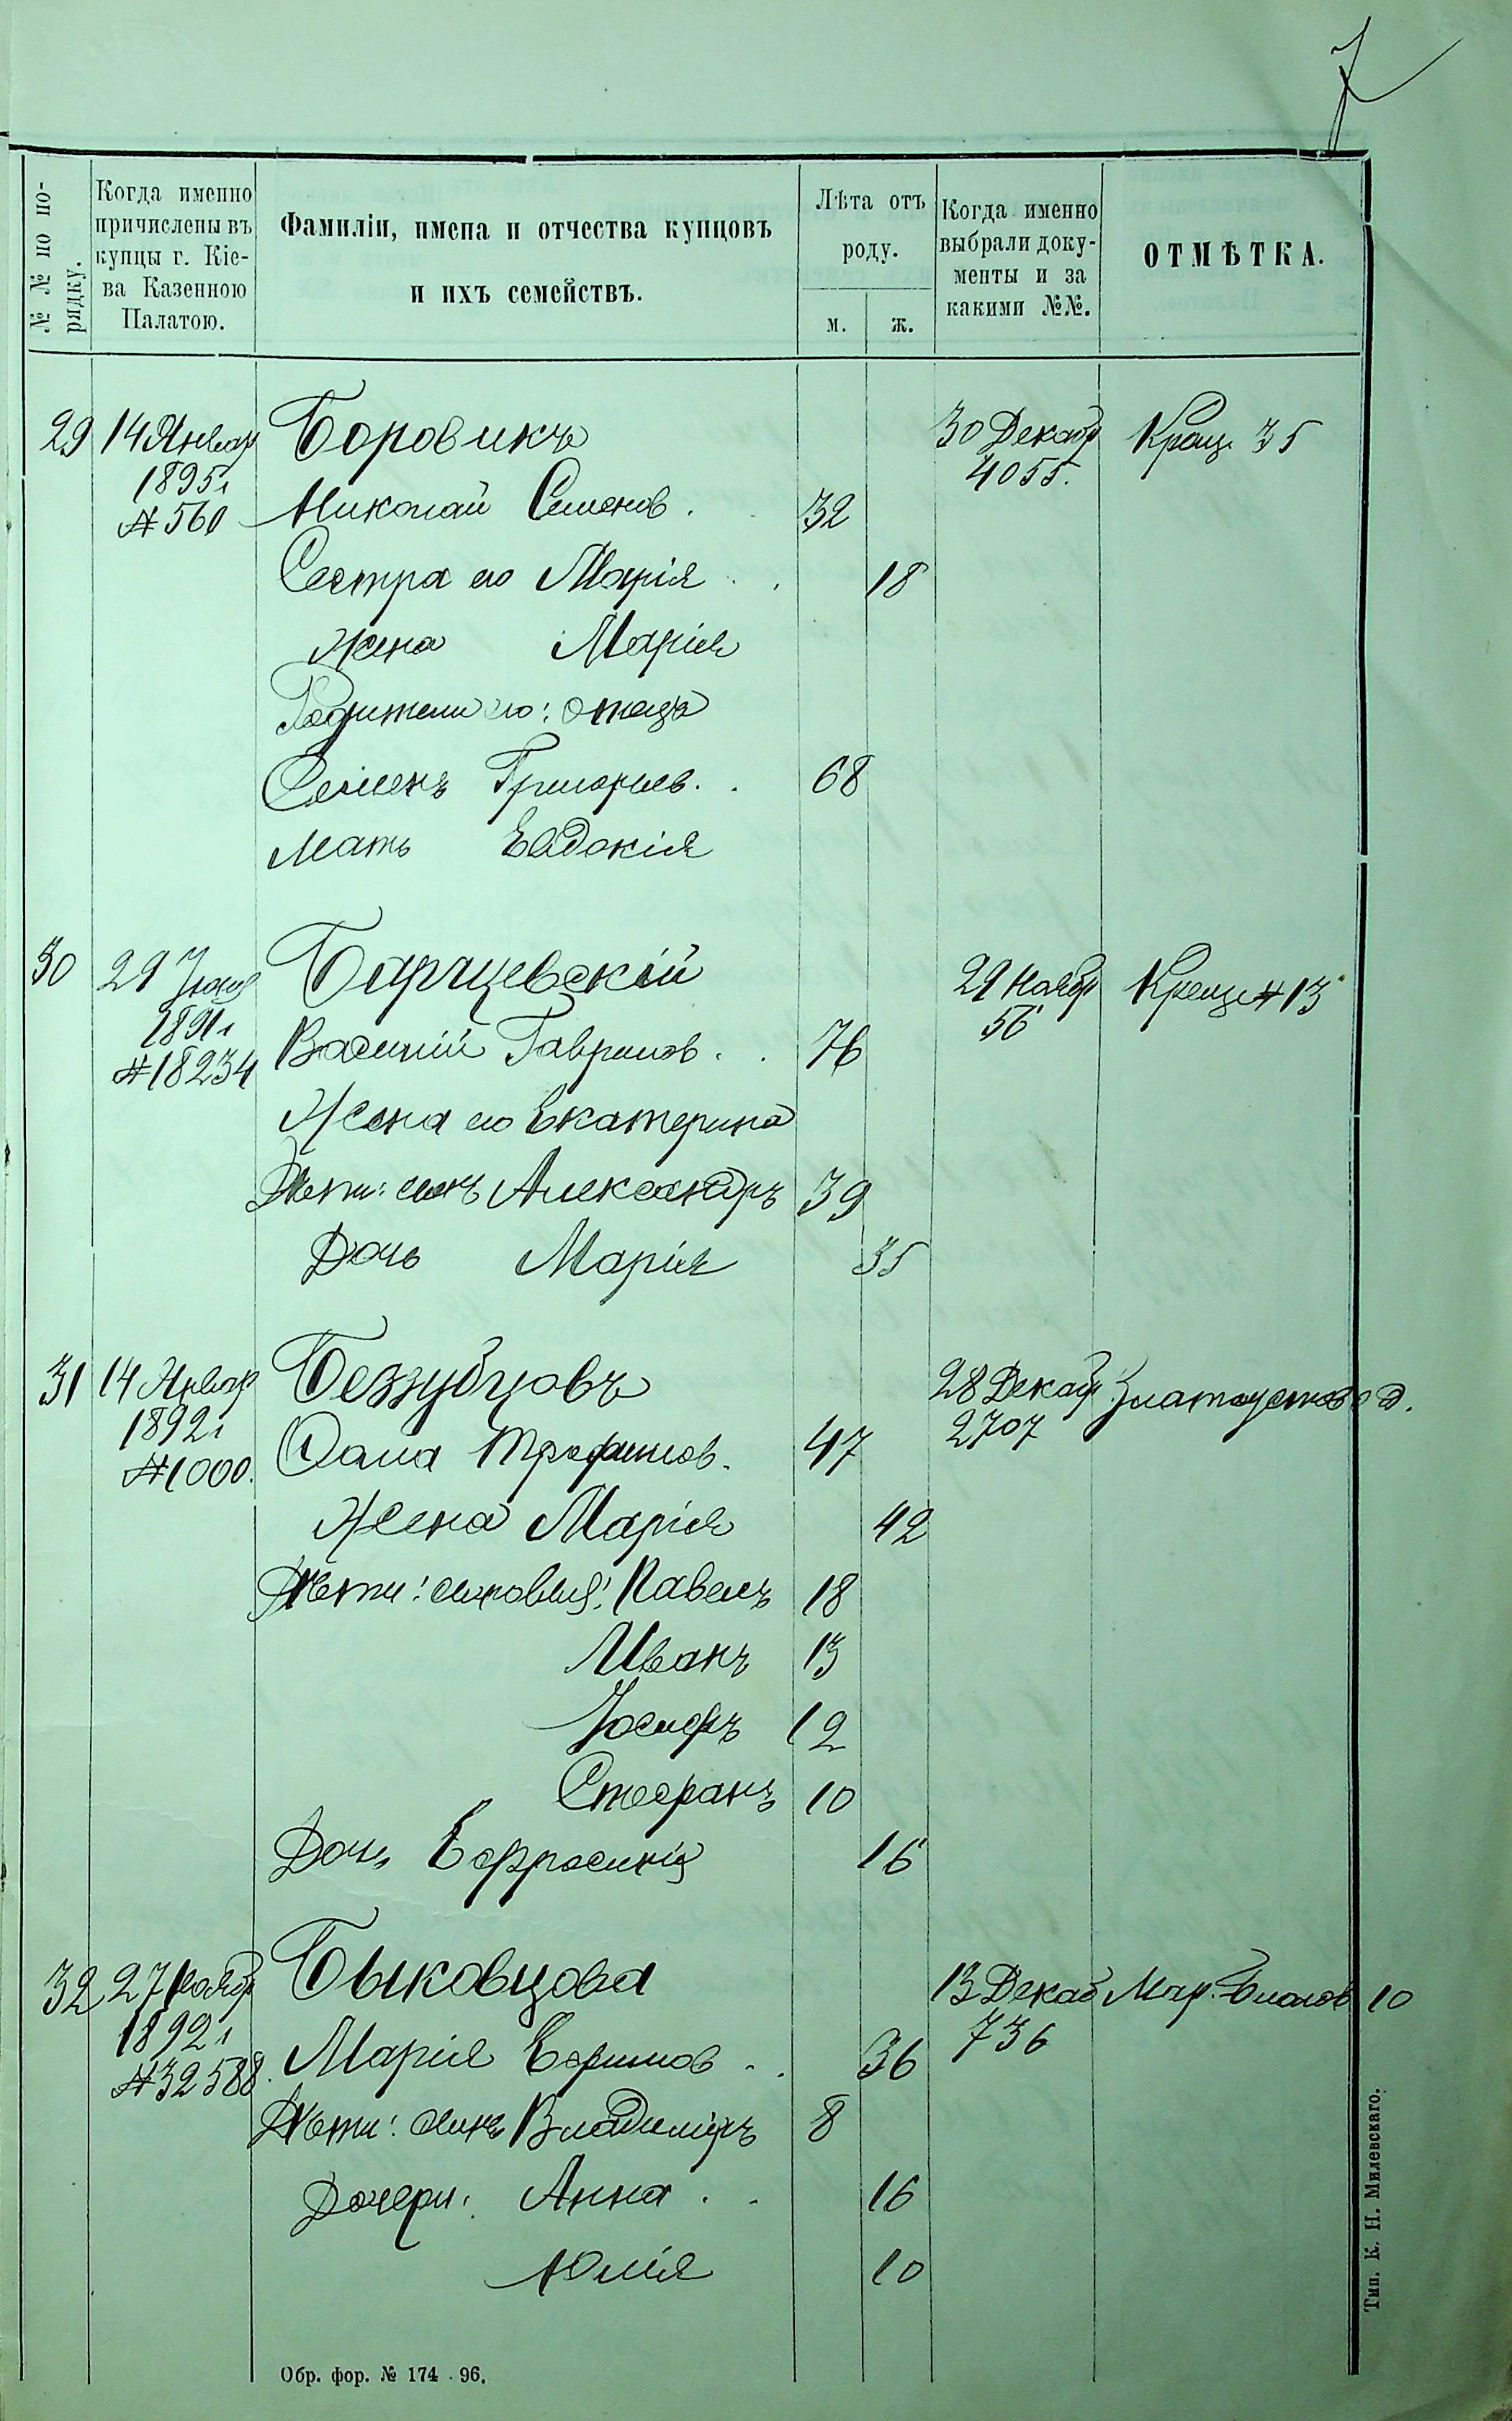 7
№ № по по-
рядку.
Когда именно
причислены въ
купцы г. Кіе-
ва Казенною
Палатою.
Фамиліи, имена и отчества купцовъ
и ихъ семействъ.
Лѣта отъ
роду.
м. ж.
Когда именно
выбрали доку-
менты и за
какими №№.
ОТМѢТКА.
29 14 Январ Боровикъ 30 Декабр Крещ 35
1895г 4055.
№ 560 Николай Семенов. 32
Сестра его Марія 18
Жена Марія
Родители его: отецъ
Семенъ Григорьев. 68
Мать Евдокія
30 29 Барщевскій 29 Ноябр Крещ № 13
1891г 56
№ 18234 Василій Гаврилов. 76
Жена его Екатерина
Дѣти: сынъ Александръ 39
Дочь Марія 35
31 14 Январ Беззубцовъ 28 Декабр Златоустов д.
1892г 2707
№ 1000. Фома Трофимов. 47
Жена Марія 42
Дѣти: сыновья: Павелъ 18
Иванъ 13
Іосифъ 12
Стефанъ 10
Дочь Ефросинія 16
32 27 Ноябр Быковцова 13 Декаб Мар. Благов 10
1892г 736
№ 32588. Марія Ефимов. 36
Дѣти: сынъ Владиміръ 8
Дочери: Анна 16
Юлія 10
Обр. фор. № 174 - 96.
Тип. К. Н. Милевскаго.